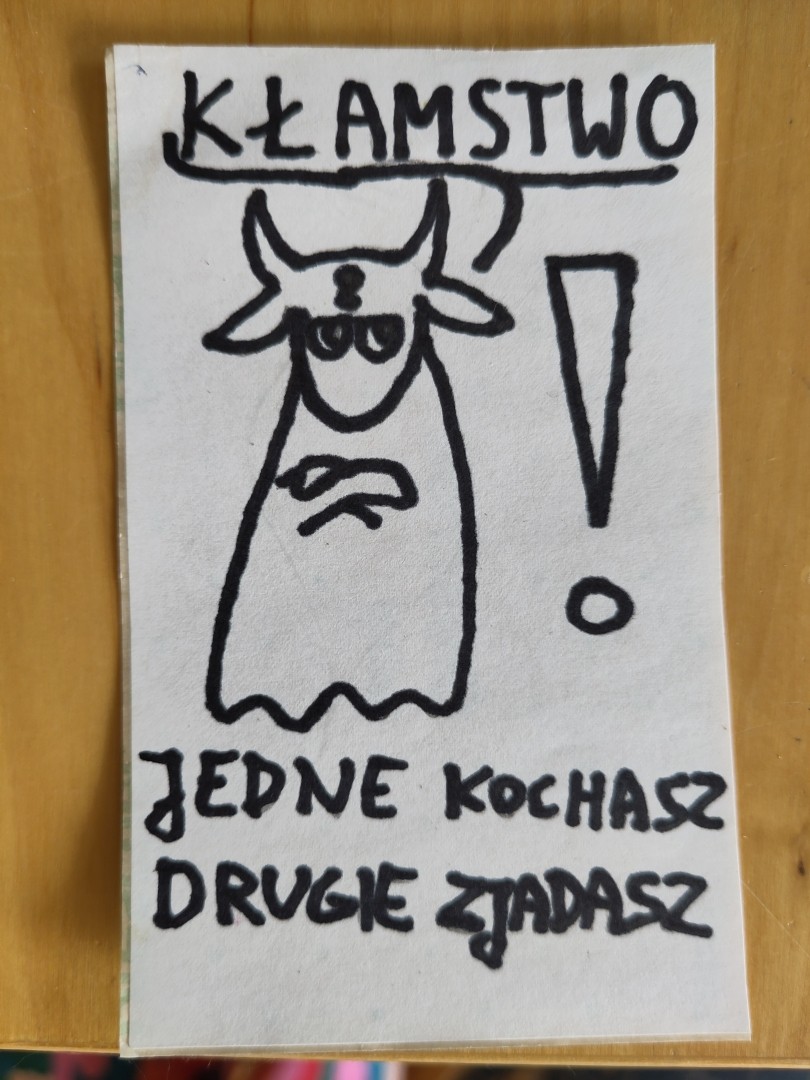 KŁAMSTWO
!
JEDNE KOCHASZ
DRUGIE ZJADASZ